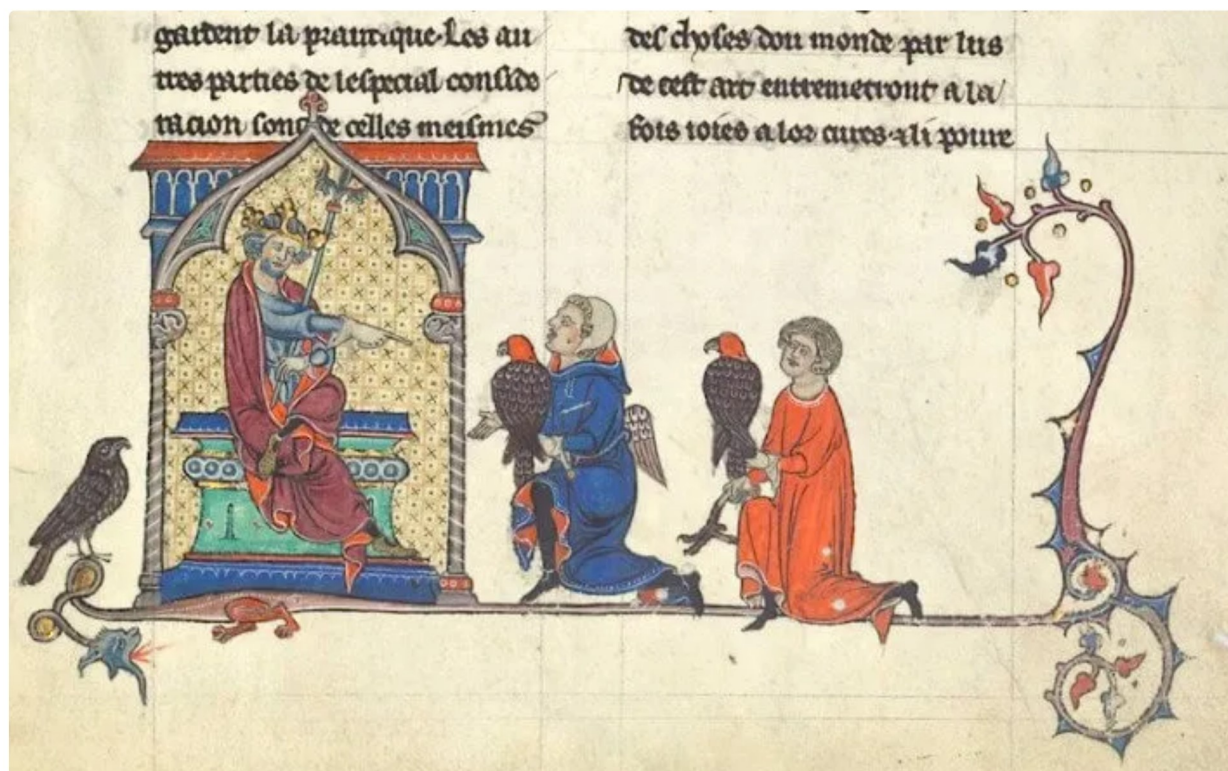 gardent la pratique. Les au
tres parties de lespecial conside
racion sont de celles meismes
des choses dou monde par lus
de cest art entremetront a la
fois ioies a lor cures. ⁊ li poure